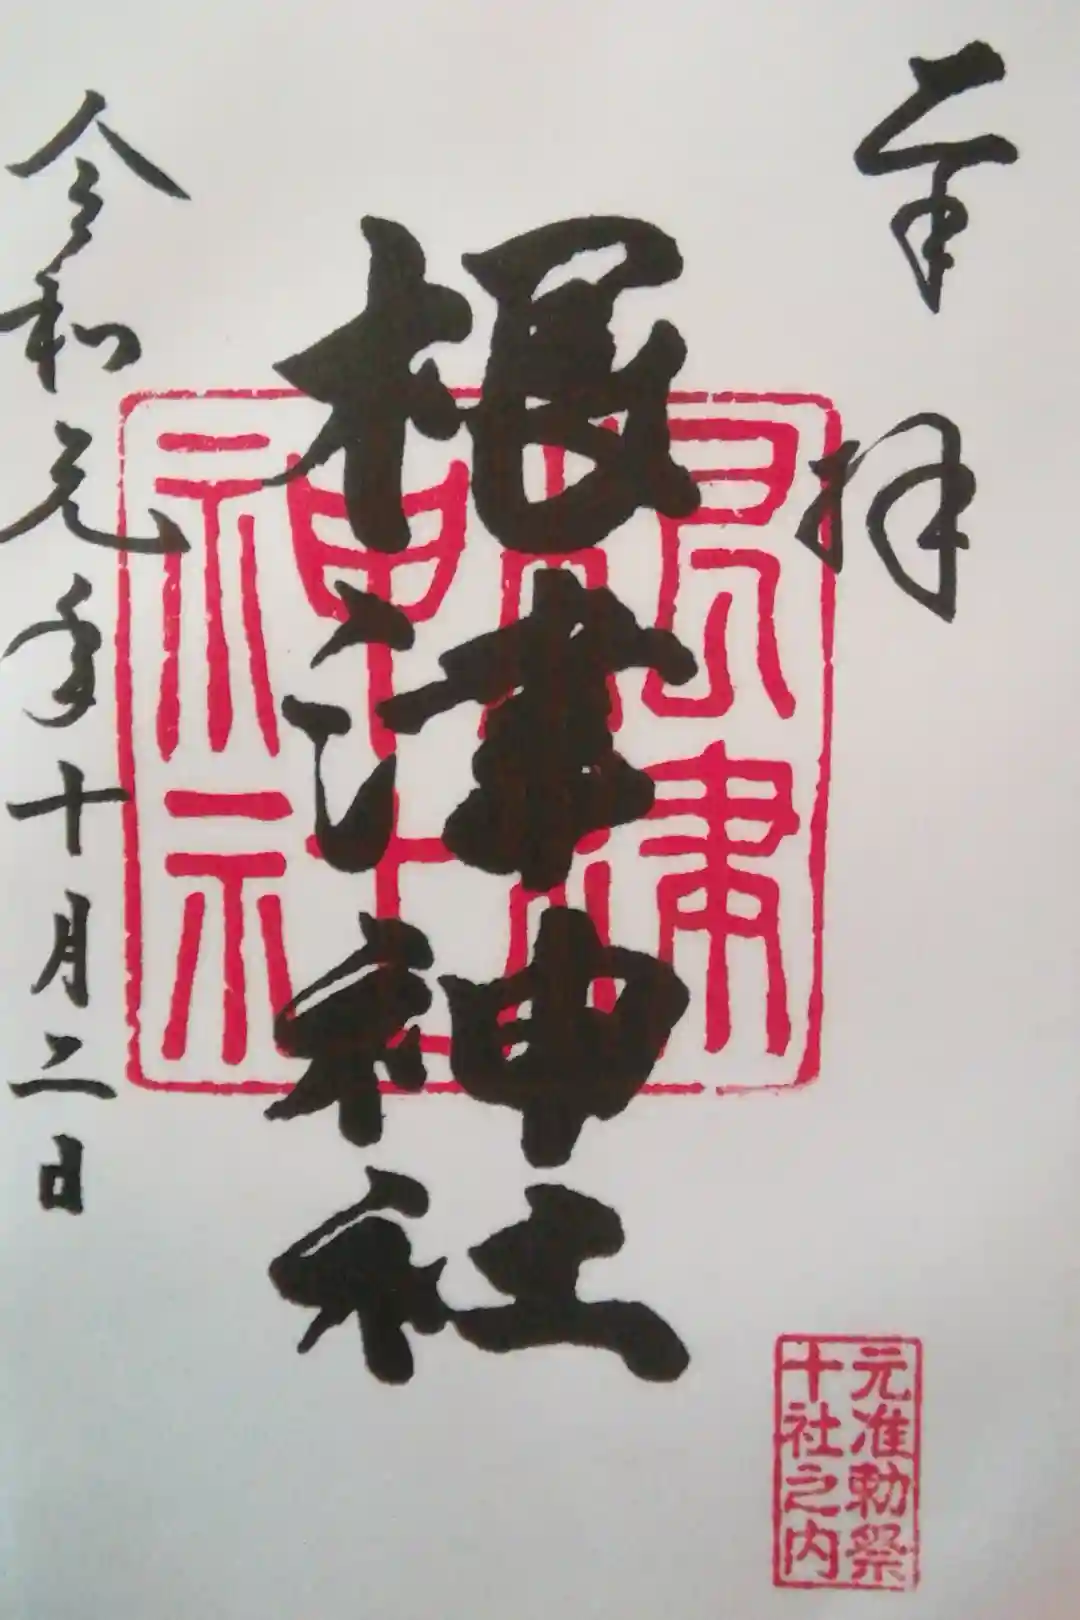 奉拝
根津神社
根津神社
令和元年十月二日
元准勅祭
十社之内